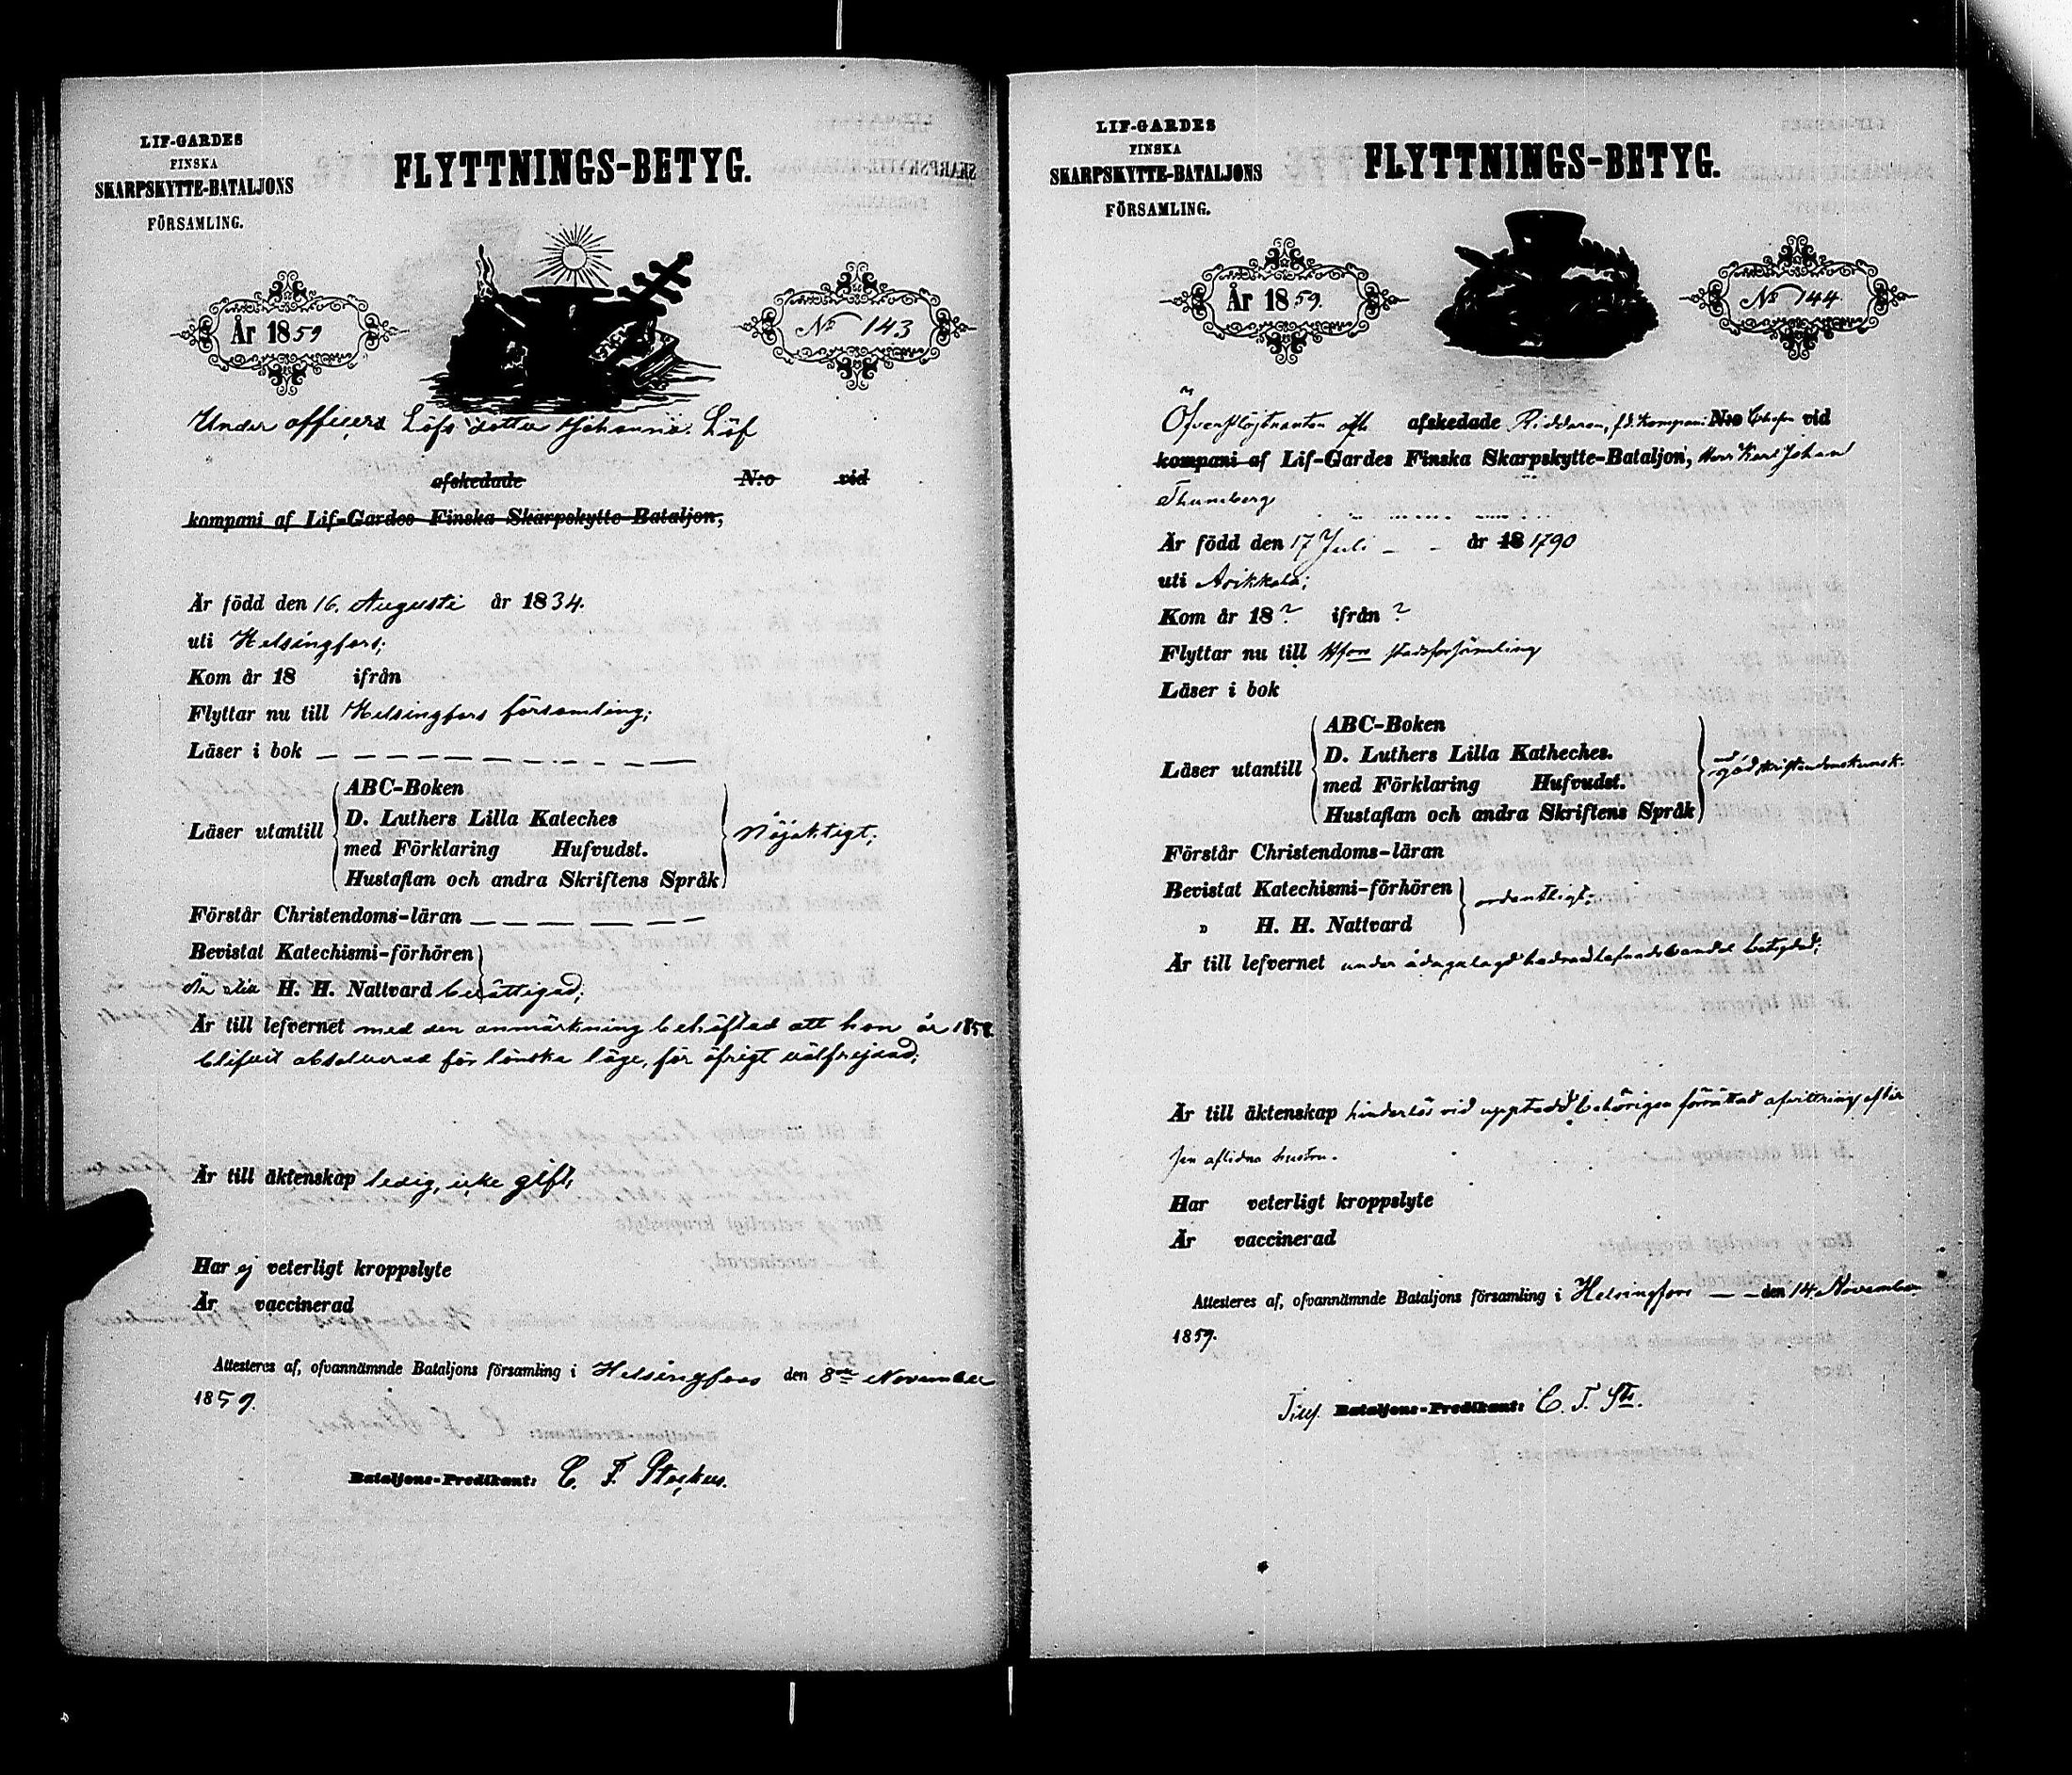 LIF-GARDES
FINSKA
SKARPSKYTTE-BATALJONS
FÖRSAMLING.
FLYTTNINGS-BETYG.
År 1859
No 143
Under officers Löfs dotter Johanna Löf
afskedade N:o vid
kompani af Lif-Gardes Finska Skarpskytte-Bataljon,
Är född den 16. Augusti år 1834.
uti Helsingfors;
Kom år 18 ifrån
Flyttar nu till Helsingfors församling;
Läser i bok — — — — — — — — — —
ABC-Boken
D. Luthers Lilla Kateches
Läser utantill med Förklaring Hufvudst. Nöjaktigt;
Hustaflan och andra Skriftens Språk
Förstår Christendoms-läran — — — — — —
Bevistat Katechismi-förhören
Är till H. H. Nattvard berättigad;
Är till lefvernet med den anmärkning behäftad att hon år 1858
blifvit absolverad för lönska läge, för öfrigt välfrejdad;
Är till äktenskap ledig, icke gift;
Har ej veterligt kroppslyte
Är vaccinerad
Attesteres af, ofvannämnde Bataljons församling i Helsingfors den 8de November
1859.
Bataljons-Predikant: C. F.
LIF-GARDES
FINSKA
SKARPSKYTTE-BATALJONS
FÖRSAMLING.
FLYTTNINGS-BETYG.
År 1859.
No 144
Öfverstlöjtnanten och afskedade Riddaren, f.d. Kompani N:o Chefen vid
kompani af Lif-Gardes Finska Skarpskytte-Bataljon, Herr Karl Johan
Thunberg
Är född den 17 Juli — — år 18 1790
uti Asikkala;
Kom år 18 ? ifrån ?
Flyttar nu till Hfors stadsförsamling
Läser i bok
ABC-Boken
D. Luthers Lilla Katheches.
Läser utantill med Förklaring Hufvudst. god kristendomskunsk.
Hustaflan och andra Skriftens Språk
Förstår Christendoms-läran
Bevistat Katechismi-förhören
ordentligt;
" H. H. Nattvard
Är till lefvernet under ådagalagd hedrand lefnadsvandel betygad;
Är till äktenskap hinderlös vid uppte behörigen förrättad afvittring efter
sin aflidna hustru.
Har veterligt kroppslyte
Är vaccinerad
Attesteres af, ofvannämnde Bataljons församling i Helsingfors — — den 14 November
1859.
Bataljons-Predikant: C. F. St.